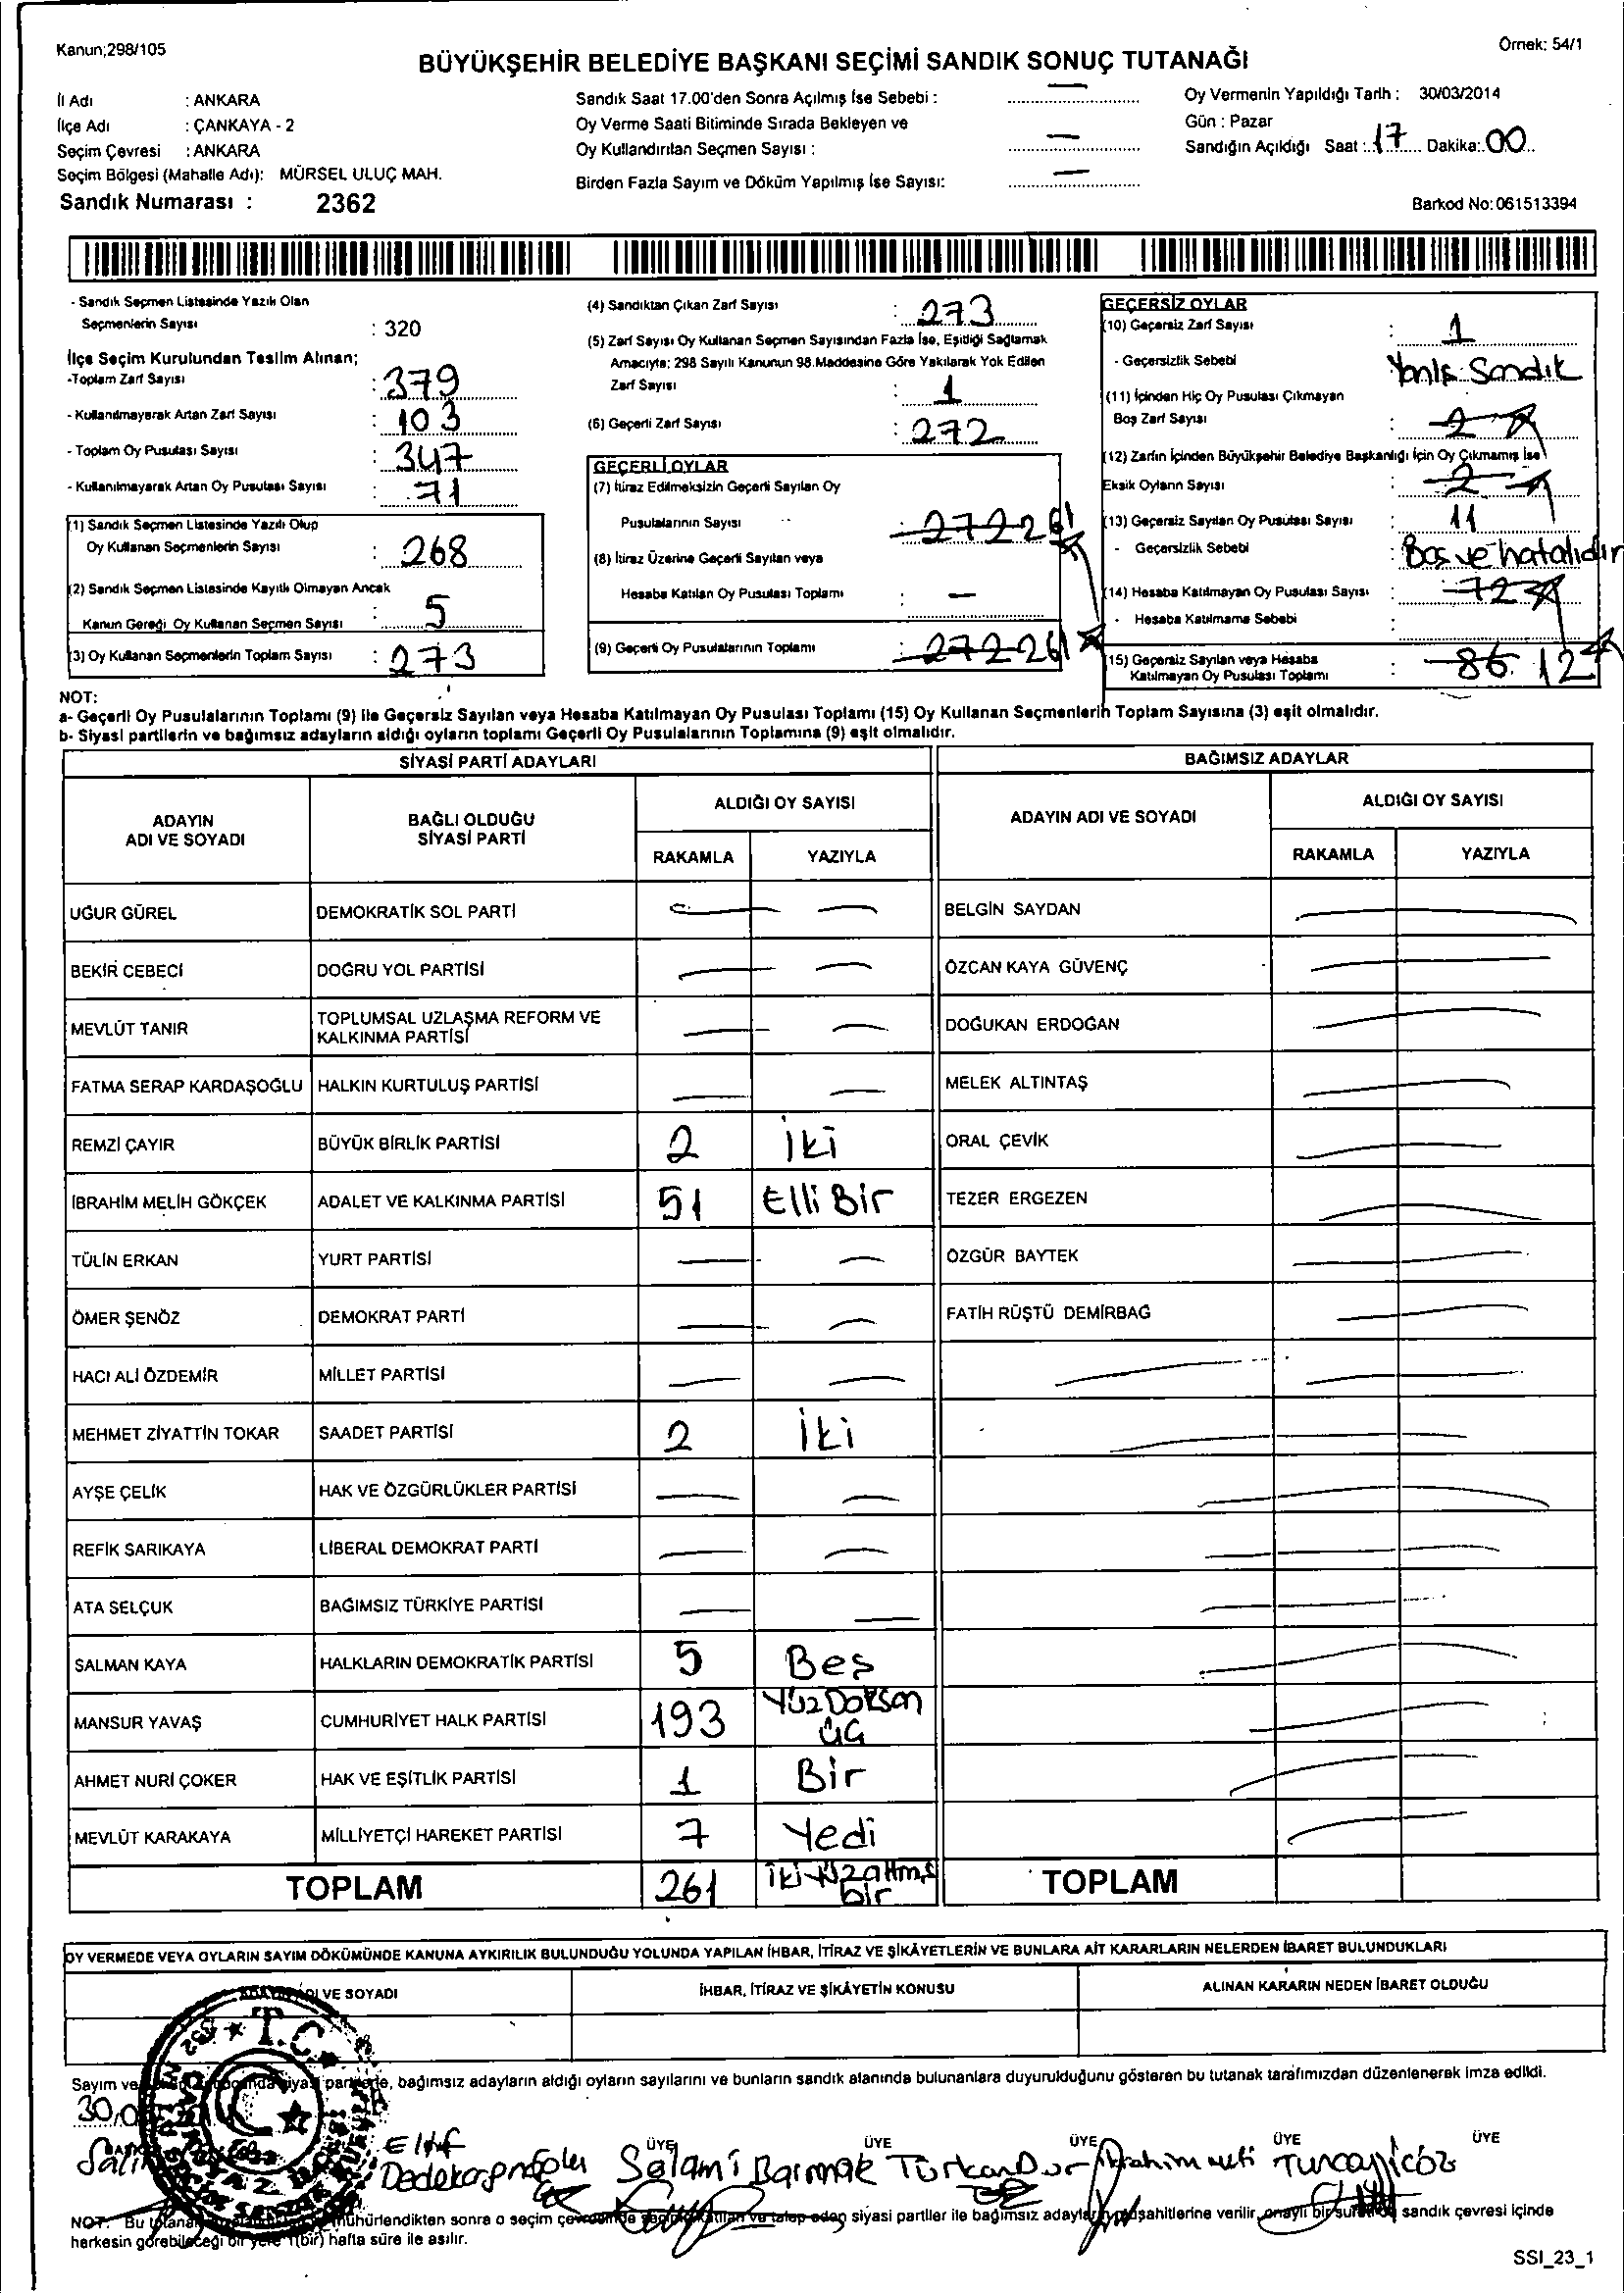 Kanun;298/105
Örnek: 54/1
BÜYÜKŞEHİR BELEDİYE BAŞKANI SEÇİMİ SANDIK SONUÇ TUTANAĞI
İl Adı : ANKARA
İlçe Adı : ÇANKAYA - 2
Seçim Çevresi : ANKARA
Seçim Bölgesi (Mahalle Adı): MÜRSEL ULUÇ MAH.
Sandık Numarası : 2362
Sandık Saat 17.00'den Sonra Açılmış İse Sebebi : —
Oy Verme Saati Bitiminde Sırada Bekleyen ve
Oy Kullandırılan Seçmen Sayısı : —
Birden Fazla Sayım ve Döküm Yapılmış İse Sayısı: —
Oy Vermenin Yapıldığı Tarih : 30/03/2014
Gün : Pazar
Sandığın Açıldığı Saat : 17 Dakika: 00
Barkod No: 061513394
- Sandık Seçmen Listesinde Yazılı Olan
Seçmenlerin Sayısı : 320
İlçe Seçim Kurulundan Teslim Alınan;
-Toplam Zarf Sayısı : 379
- Kullanılmayarak Artan Zarf Sayısı : 103
- Toplam Oy Pusulası Sayısı : 347
- Kullanılmayarak Artan Oy Pusulası Sayısı : 71
(1) Sandık Seçmen Listesinde Yazılı Olup
Oy Kullanan Seçmenlerin Sayısı : 268
(2) Sandık Seçmen Listesinde Kayıtlı Olmayan Ancak
Kanun Gereği Oy Kullanan Seçmen Sayısı : 5
(3) Oy Kullanan Seçmenlerin Toplam Sayısı : 273
(4) Sandıktan Çıkan Zarf Sayısı : 273
(5) Zarf Sayısı Oy Kullanan Seçmen Sayısından Fazla İse, Eşitliği Sağlamak
Amacıyla; 298 Sayılı Kanunun 98.Maddesine Göre Yakılarak Yok Edilen
Zarf Sayısı : 1
(6) Geçerli Zarf Sayısı : 272
GEÇERLİ OYLAR
(7) İtiraz Edilmeksizin Geçerli Sayılan Oy
Pusulalarının Sayısı : 272 261
(8) İtiraz Üzerine Geçerli Sayılan veya
Hesaba Katılan Oy Pusulası Toplamı : —
(9) Geçerli Oy Pusulalarının Toplamı : 272 261
GEÇERSİZ OYLAR
(10) Geçersiz Zarf Sayısı : 1
- Geçersizlik Sebebi Yanlış Sandık
(11) İçinden Hiç Oy Pusulası Çıkmayan
Boş Zarf Sayısı : 2
(12) Zarfın İçinden Büyükşehir Belediye Başkanlığı İçin Oy Çıkmamış İse
Eksik Oyların Sayısı : 2
(13) Geçersiz Sayılan Oy Pusulası Sayısı : 11
- Geçersizlik Sebebi : Boş ve hatalıdır
(14) Hesaba Katılmayan Oy Pusulası Sayısı : 72
- Hesaba Katılmama Sebebi :
(15) Geçersiz Sayılan veya Hesaba
Katılmayan Oy Pusulası Toplamı : 86 12
NOT:
a- Geçerli Oy Pusulalarının Toplamı (9) ile Geçersiz Sayılan veya Hesaba Katılmayan Oy Pusulası Toplamı (15) Oy Kullanan Seçmenlerin Toplam Sayısına (3) eşit olmalıdır.
b- Siyasi partilerin ve bağımsız adayların aldığı oyların toplamı Geçerli Oy Pusulalarının Toplamına (9) eşit olmalıdır.
SİYASİ PARTİ ADAYLARI
BAĞIMSIZ ADAYLAR
ADAYIN ADI VE SOYADI
BAĞLI OLDUĞU SİYASİ PARTİ
ALDIĞI OY SAYISI
RAKAMLA YAZIYLA
ADAYIN ADI VE SOYADI
ALDIĞI OY SAYISI
RAKAMLA YAZIYLA
UĞUR GÜREL DEMOKRATİK SOL PARTİ — — BELGİN SAYDAN —
BEKİR CEBECİ DOĞRU YOL PARTİSİ — — ÖZCAN KAYA GÜVENÇ —
MEVLÜT TANIR TOPLUMSAL UZLAŞMA REFORM VE KALKINMA PARTİSİ — — DOĞUKAN ERDOĞAN —
FATMA SERAP KARDAŞOĞLU HALKIN KURTULUŞ PARTİSİ — — MELEK ALTINTAŞ —
REMZİ ÇAYIR BÜYÜK BİRLİK PARTİSİ 2 İki ORAL ÇEVİK —
İBRAHİM MELİH GÖKÇEK ADALET VE KALKINMA PARTİSİ 51 Elli Bir TEZER ERGEZEN —
TÜLİN ERKAN YURT PARTİSİ — — ÖZGÜR BAYTEK —
ÖMER ŞENÖZ DEMOKRAT PARTİ — — FATİH RÜŞTÜ DEMİRBAĞ —
HACI ALİ ÖZDEMİR MİLLET PARTİSİ — —
MEHMET ZİYATTİN TOKAR SAADET PARTİSİ 2 İki
AYŞE ÇELİK HAK VE ÖZGÜRLÜKLER PARTİSİ — —
REFİK SARIKAYA LİBERAL DEMOKRAT PARTİ — —
ATA SELÇUK BAĞIMSIZ TÜRKİYE PARTİSİ — —
SALMAN KAYA HALKLARIN DEMOKRATİK PARTİSİ 5 Beş
MANSUR YAVAŞ CUMHURİYET HALK PARTİSİ 193 Yüz Doksan üç
AHMET NURİ ÇOKER HAK VE EŞİTLİK PARTİSİ 1 Bir
MEVLÜT KARAKAYA MİLLİYETÇİ HAREKET PARTİSİ 7 Yedi
TOPLAM 261 iki yüz altmış bir TOPLAM
OY VERMEDE VEYA OYLARIN SAYIM DÖKÜMÜNDE KANUNA AYKIRILIK BULUNDUĞU YOLUNDA YAPILAN İHBAR, İTİRAZ VE ŞİKÂYETLERİN VE BUNLARA AİT KARARLARIN NELERDEN İBARET BULUNDUKLARI
VE SOYADI İHBAR, İTİRAZ VE ŞİKÂYETİN KONUSU ALINAN KARARIN NEDEN İBARET OLDUĞU
T.C.
Sayım ve bağımsız adayların aldığı oyların sayılarını ve bunların sandık alanında bulunanlara duyurulduğunu gösteren bu tutanak tarafımızdan düzenlenerek imza edildi.
ÜYE ÜYE ÜYE ÜYE ÜYE
Elif Selami Barmak Türkan
NOT: Bu mühürlendikten sonra o seçim siyasi partiler ile bağımsız verilir, sandık çevresi içinde
herkesin görebileceği bir yere 1(bir) hafta süre ile asılır.
SSI_23_1